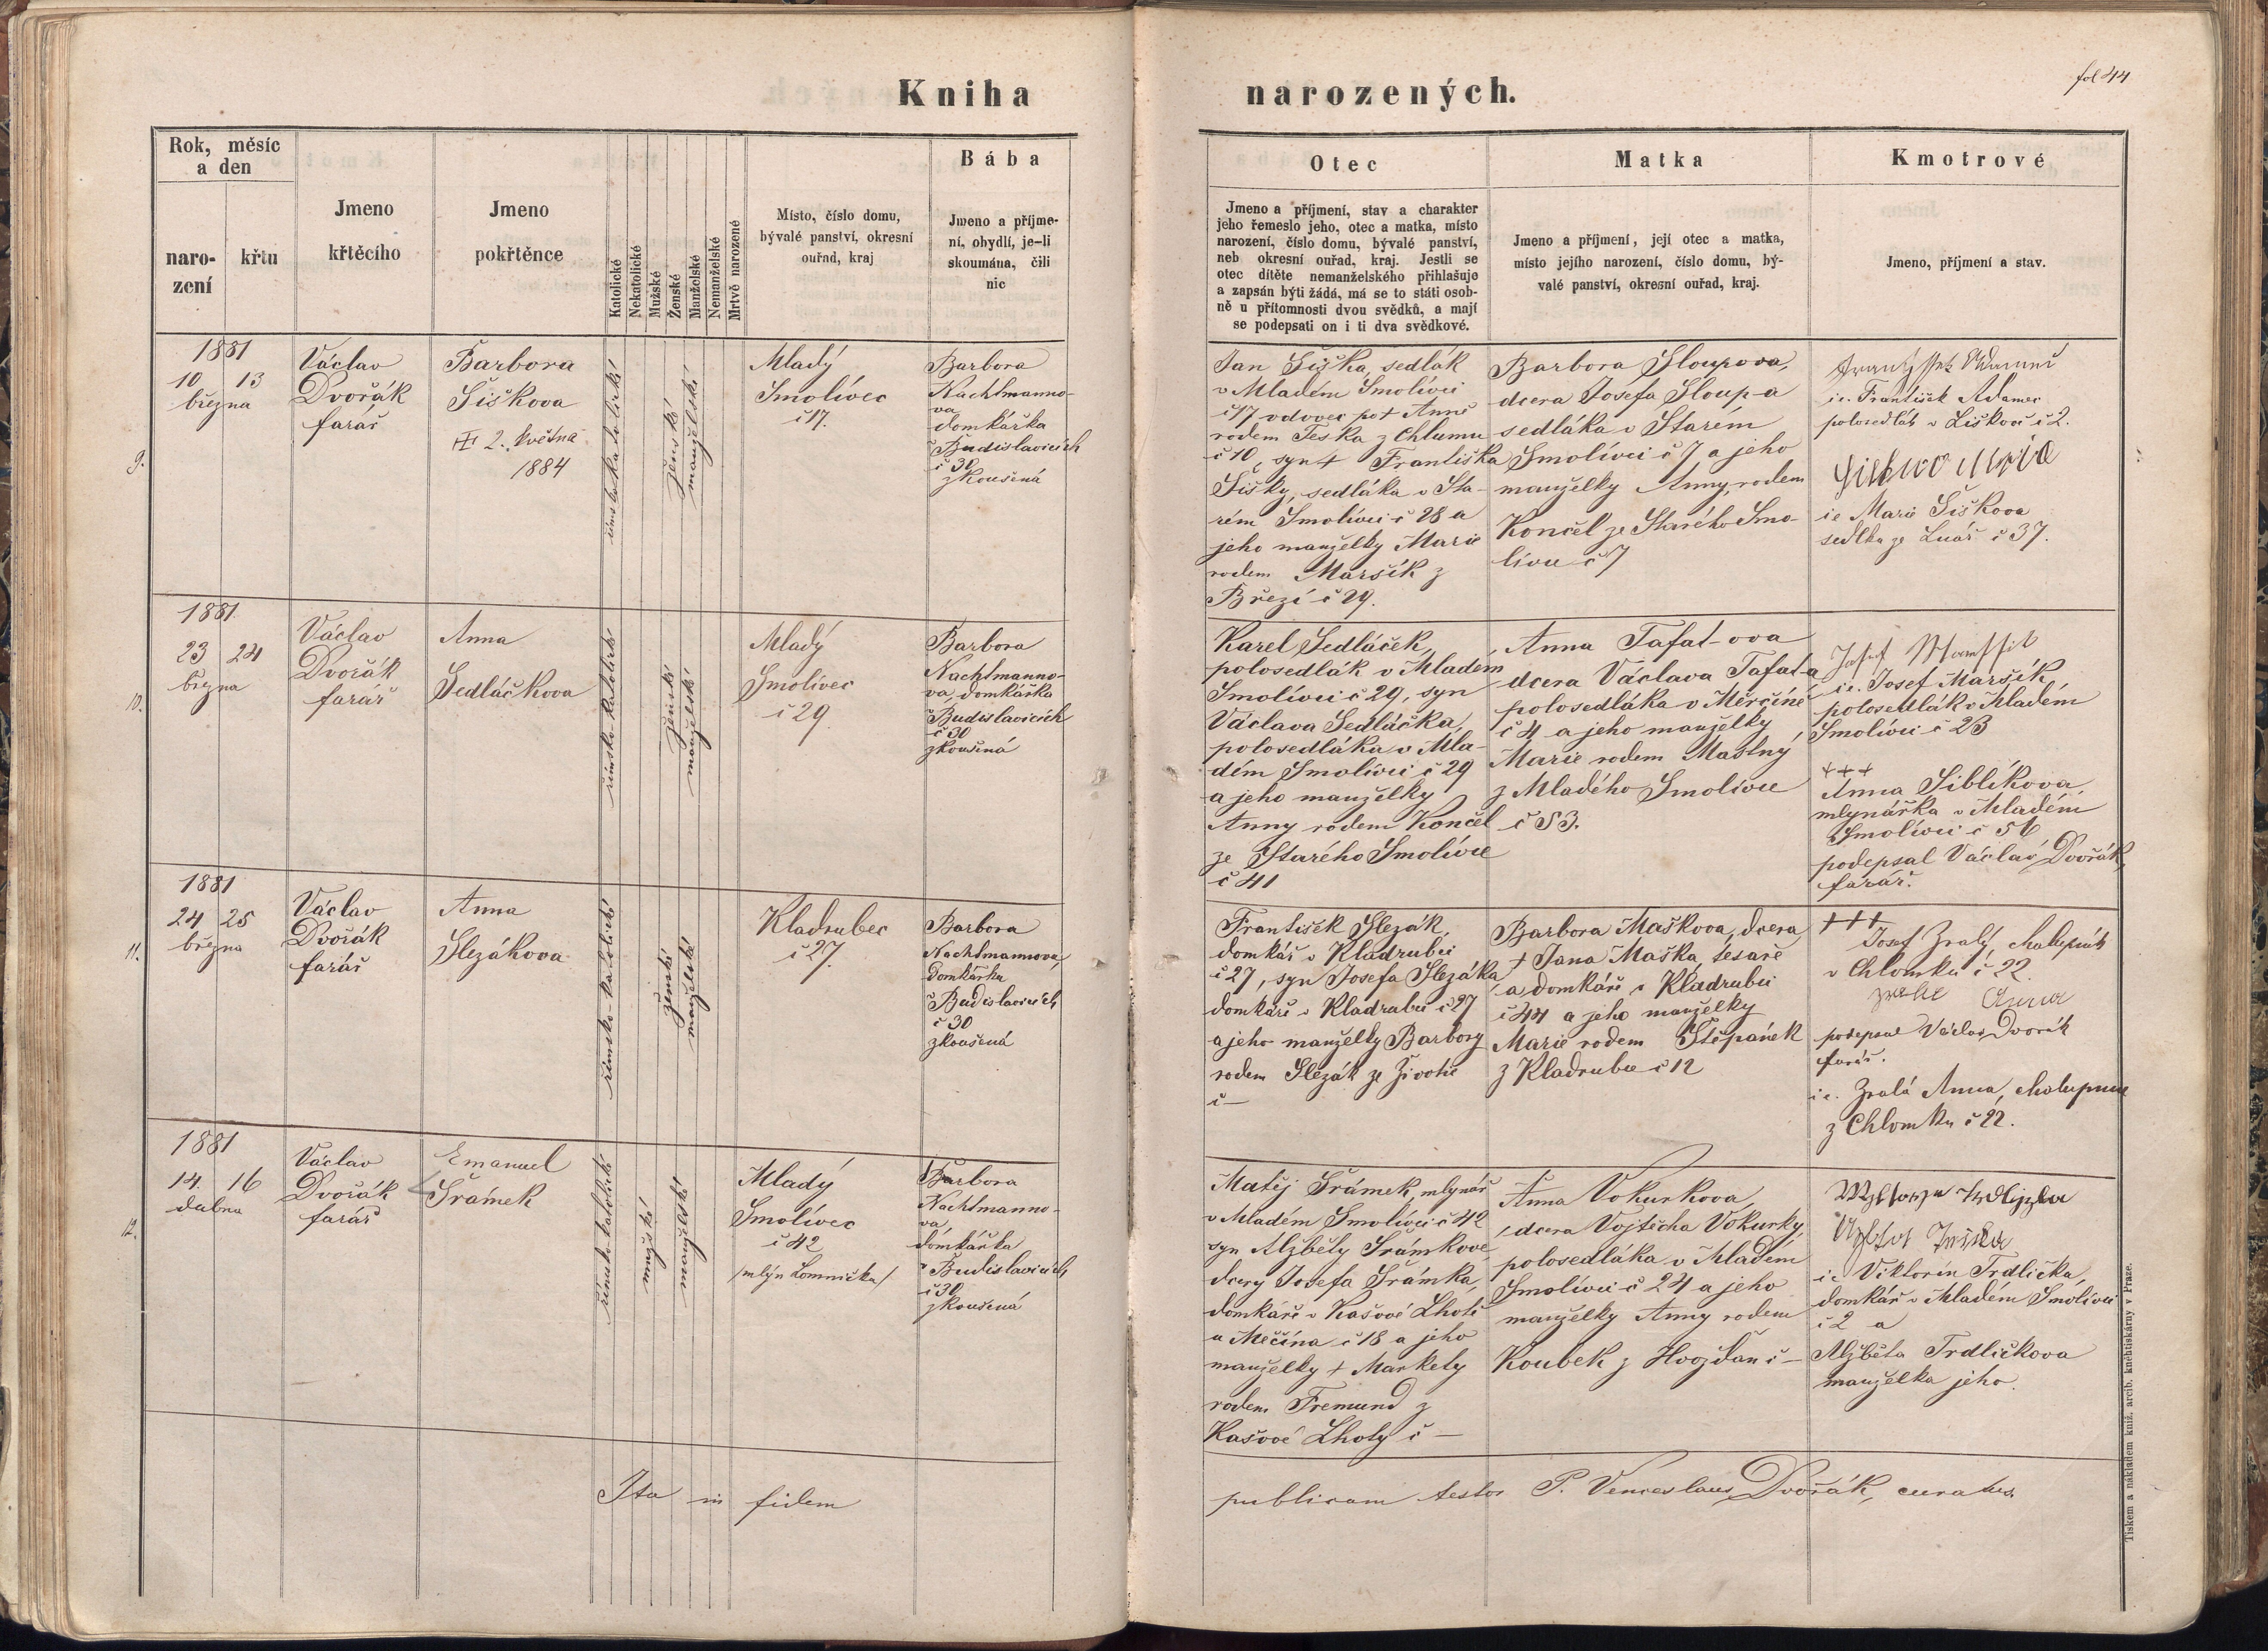 fol 44
Kniha narozených.
Rok, měsíc
a den
naro-
zení
křtu
Jmeno
křtěcího
Jmeno
pokřtěnce
Katolické
Nekatolické
Mužské
Ženské
Manželské
Nemanželské
Mrtvě narozené
Místo, číslo domu,
bývalé panství, okresní
ouřad, kraj
Bába
Jmeno a příjme-
ní, obydlí, je-li
skoumána, čili
nic
Otec
Jmeno a příjmení, stav a charakter
jeho řemeslo jeho, otec a matka, místo
narození, číslo domu, bývalé panství,
neb okresní ouřad, kraj. Jestli se
otec dítěte nemanželského přihlašuje
a zapsán býti žádá, má se to státi osob-
ně u přítomnosti dvou svědků, a mají
se podepsati on i ti dva svědkové.
Matka
Jmeno a příjmení, její otec a matka,
místo jejího narození, číslo domu, bý-
valé panství, okresní ouřad, kraj.
Kmotrové
Jmeno, příjmení a stav.
9.
1881
10 13
března
Václav
Dvořák
farář
Barbora
Šiškova
2. května
1884
římsko-katolické
ženské
manželské
Mladý
Smolivec
č 17.
Barbora
Nachtmanno-
va
domkářka
v Budislavicích
č 30
zkoušená
Jan Šiška, sedlák
v Mladém Smolivci
č 17 vdovec po + Anně
rodem Teska z Chlumu
č 10, syn + Františka
Šišky, sedláka v Sta-
rém Smolivci č 28 a
jeho manželky Marie
rodem Maršík z
Březí č 29.
Barbora Sloupova,
dcera Josefa Sloup-a
sedláka v Starém
Smolivci č 7 a jeho
manželky Anny, rodem
Končel ze Starého Smo-
livce č 7
i.e. František Adamec
polosedlák v Liškově č 2.
i e Marie Šiškova
sedlka ze Lnář č 37.
10.
1881
23 24
března
Václav
Dvořák
farář
Anna
Sedláčkova
římsko-katolické
ženské
manželské
Mladý
Smolivec
č 29
Barbora
Nachtmanno-
va, domkářka
v Budislavicích
č 30
zkoušená
Karel Sedláček,
polosedlák v Mladém
Smolivci č 29, syn
Václava Sedláčka,
polosedláka v Mla-
dém Smolivci č 29
a jeho manželky
Anny rodem Končel
ze Starého Smolivce
č 41
Anna Tafat-ova
dcera Václava Tafat-a
polosedláka v Měrčíně
č 4 a jeho manželky
Marie rodem Mastný
z Mladého Smolivce
č 53.
i.e. Josef Maršík,
polosedlák v Mladém
Smolivci č 23
+++
Anna Siblíkova,
mlynářka v Mladém
Smolivci č 51
podepsal Václav Dvořák,
farář.
11.
1881
24 25
března
Václav
Dvořák
farář
Anna
Slezákova
římsko-katolické
ženské
manželské
Kladrubec
č 27.
Barbora
Nachtmannova,
domkářka
v Budislavicích
č 30
zkoušená
František Slezák,
domkář v Kladrubci
č 27, syn Josefa Slezáka
domkáře v Kladrubci č 27
a jeho manželky Barbory
rodem Slezák ze Životic
č —
Barbora Maškova, dcera
+ Jana Maška, tesaře
a domkáře v Kladrubci
č 44 a jeho manželky
Marie rodem Štěpánek
z Kladrubce č 12
+++
Josef Zralý, chalupník
v Chlomku č 22.
Anna
podepsal Václav Dvořák
farář.
i e. Zralá Anna, chalupnice
z Chlomku č 22.
12.
1881
14. 16
dubna
Václav
Dvořák
farář
Emanuel
Šrámek
římsko-katolické
mužské
manželské
Mladý
Smolivec
č 42
/mlýn Lomnička/
Barbora
Nachtmanno-
va,
domkářka
v Budislavicích
č 30
zkoušená
Matěj Šrámek, mlynář
v Mladém Smolivci č 42
syn Alžběty Šrámkove
dcery Josefa Šrámka,
domkáře v Kašově Lhotě
u Měčína č 18 a jeho
manželky + Markety
rodem Fremund z
Kašové Lhoty č —
Anna Vokurkova,
dcera Vojtěcha Vokurky,
polosedláka v Mladém
Smolivci č 24 a jeho
manželky Anny rodem
Koubek z Hvožďan č —
i e Viktorin Trdlička,
domkář v Mladém Smolivci
č 2 a
Alžběta Trdličkova
manželka jeho.
Ita in fidem publicam testor P. Venceslaus Dvořák, curatus.
Tiskem a nákladem kníž. arcib. knihtiskárny v Praze.